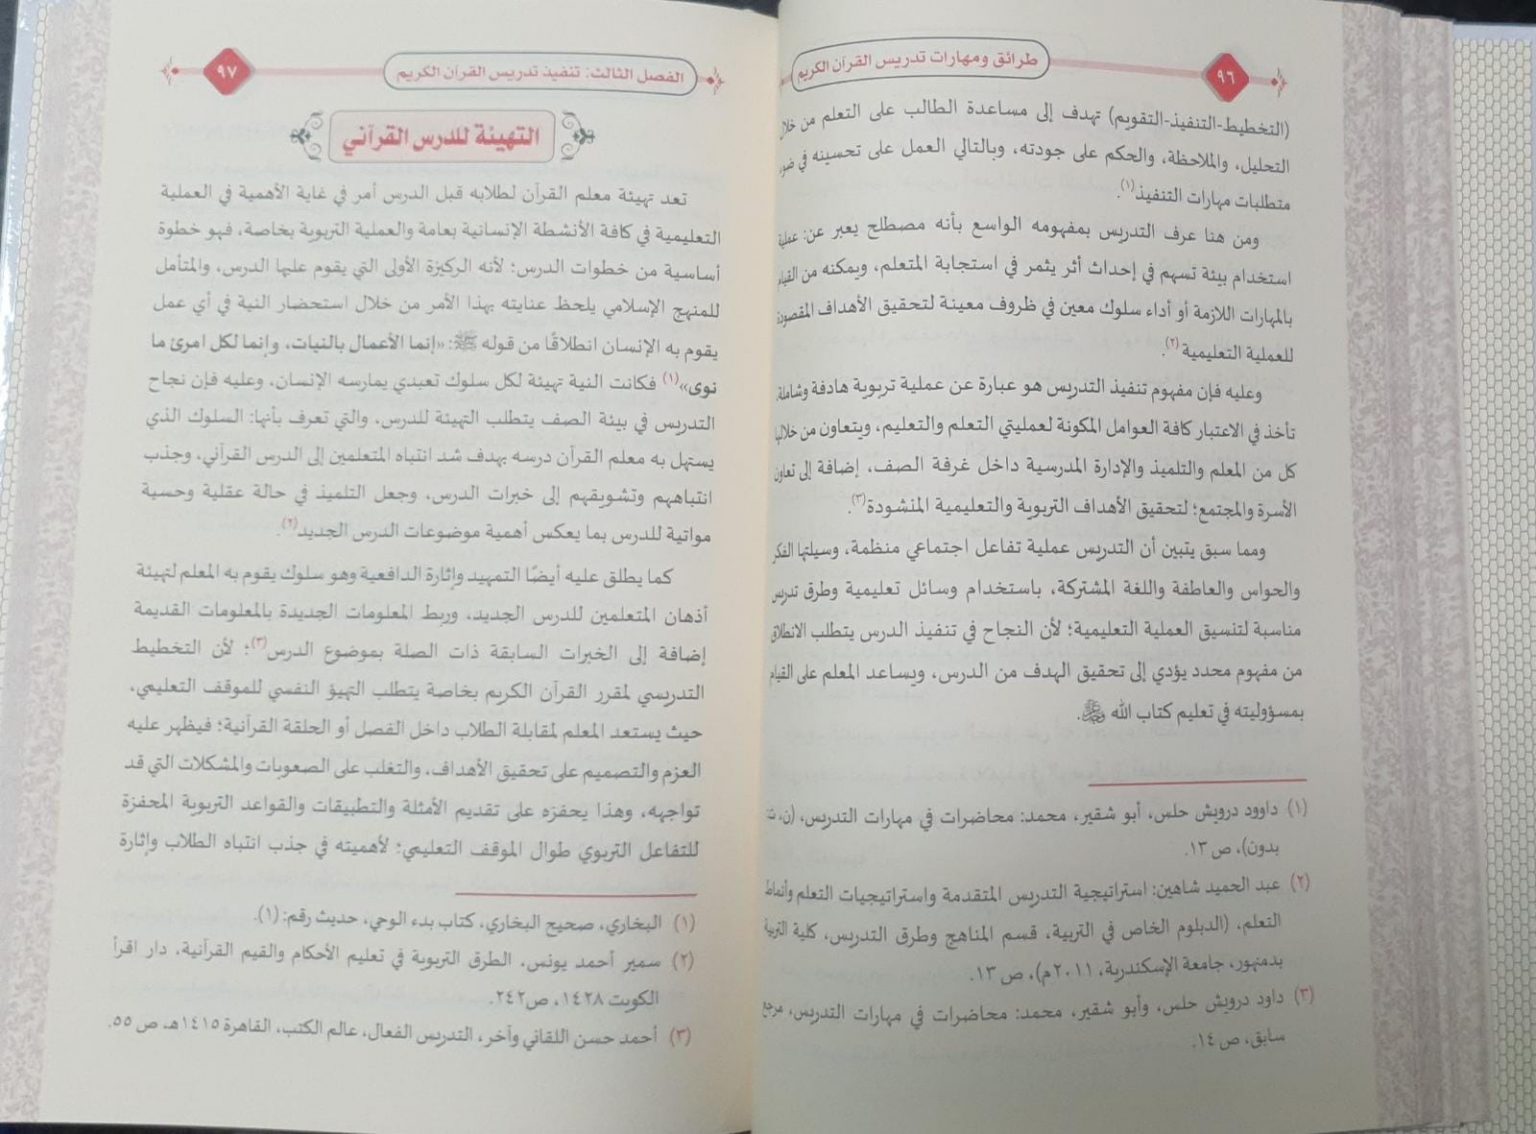 طرائق ومهارات تدريس القرآن الكريم
٩٦
(التخطيط-التنفيذ-التقويم) تهدف إلى مساعدة الطالب على التعلم من خلال
التحليل، والملاحظة، والحكم على جودته، وبالتالي العمل على تحسينه في ضوء
متطلبات مهارات التنفيذ(١).
ومن هنا عرف التدريس بمفهومه الواسع بأنه مصطلح يعبر عن: عملية
استخدام بيئة تسهم في إحداث أثر يثمر في استجابة المتعلم، ويمكنه من القيام
بالمهارات اللازمة أو أداء سلوك معين في ظروف معينة لتحقيق الأهداف المقصودة
للعملية التعليمية(٢).
وعليه فإن مفهوم تنفيذ التدريس هو عبارة عن عملية تربوية هادفة وشاملة،
تأخذ في الاعتبار كافة العوامل المكونة لعمليتي التعلم والتعليم، ويتعاون من خلالها
كل من المعلم والتلميذ والإدارة المدرسية داخل غرفة الصف، إضافة إلى تعاون
الأسرة والمجتمع؛ لتحقيق الأهداف التربوية والتعليمية المنشودة(٣).
ومما سبق يتبين أن التدريس عملية تفاعل اجتماعي منظمة، وسيلتها الفكر
والحواس والعاطفة واللغة المشتركة، باستخدام وسائل تعليمية وطرق تدريس
مناسبة لتنسيق العملية التعليمية؛ لأن النجاح في تنفيذ الدرس يتطلب الانطلاق
من مفهوم محدد يؤدي إلى تحقيق الهدف من الدرس، ويساعد المعلم على القيام
بمسؤوليته في تعليم كتاب الله ﷻ.
(١) داوود درويش حلس، أبو شقير، محمد: محاضرات في مهارات التدريس، (ن،
بدون)، ص ١٣.
(٢) عبد الحميد شاهين: استراتيجية التدريس المتقدمة واستراتيجيات التعلم وأنماط
التعلم، (الدبلوم الخاص في التربية، قسم المناهج وطرق التدريس، كلية التربية
بدمنهور، جامعة الإسكندرية، ٢٠١١م)، ص ١٣.
(٣) داود درويش حلس، وأبو شقير، محمد: محاضرات في مهارات التدريس، مرجع
سابق، ص ١٤.
الفصل الثالث: تنفيذ تدريس القرآن الكريم
٩٧
التهيئة للدرس القرآني
تعد تهيئة معلم القرآن لطلابه قبل الدرس أمر في غاية الأهمية في العملية
التعليمية في كافة الأنشطة الإنسانية بعامة والعملية التربوية بخاصة، فهو خطوة
أساسية من خطوات الدرس؛ لأنه الركيزة الأولى التي يقوم عليها الدرس، والمتأمل
للمنهج الإسلامي يلحظ عنايته بهذا الأمر من خلال استحضار النية في أي عمل
يقوم به الإنسان انطلاقًا من قوله ﷺ: «إنما الأعمال بالنيات، وإنما لكل امرئ ما
نوى»(١) فكانت النية تهيئة لكل سلوك تعبدي يمارسه الإنسان، وعليه فإن نجاح
التدريس في بيئة الصف يتطلب التهيئة للدرس، والتي تعرف بأنها: السلوك الذي
يستهل به معلم القرآن درسه بهدف شد انتباه المتعلمين إلى الدرس القرآني، وجذب
انتباههم وتشويقهم إلى خبرات الدرس، وجعل التلميذ في حالة عقلية وحسية
مواتية للدرس بما يعكس أهمية موضوعات الدرس الجديد(٢).
كما يطلق عليه أيضًا التمهيد وإثارة الدافعية وهو سلوك يقوم به المعلم لتهيئة
أذهان المتعلمين للدرس الجديد، وربط المعلومات الجديدة بالمعلومات القديمة
إضافة إلى الخبرات السابقة ذات الصلة بموضوع الدرس(٣)؛ لأن التخطيط
التدريسي لمقرر القرآن الكريم بخاصة يتطلب التهيؤ النفسي للموقف التعليمي،
حيث يستعد المعلم لمقابلة الطلاب داخل الفصل أو الحلقة القرآنية؛ فيظهر عليه
العزم والتصميم على تحقيق الأهداف، والتغلب على الصعوبات والمشكلات التي قد
تواجهه، وهذا يحفزه على تقديم الأمثلة والتطبيقات والقواعد التربوية المحفزة
للتفاعل التربوي طوال الموقف التعليمي؛ لأهميته في جذب انتباه الطلاب وإثارة
(١) البخاري، صحيح البخاري، كتاب بدء الوحي، حديث رقم: (١).
(٢) سمير أحمد يونس، الطرق التربوية في تعليم الأحكام والقيم القرآنية، دار اقرأ
الكويت ١٤٢٨، ص٢٤٢.
(٣) أحمد حسن اللقاني وآخر، التدريس الفعال، عالم الكتب، القاهرة ١٤١٥هـ، ص ٥٥.